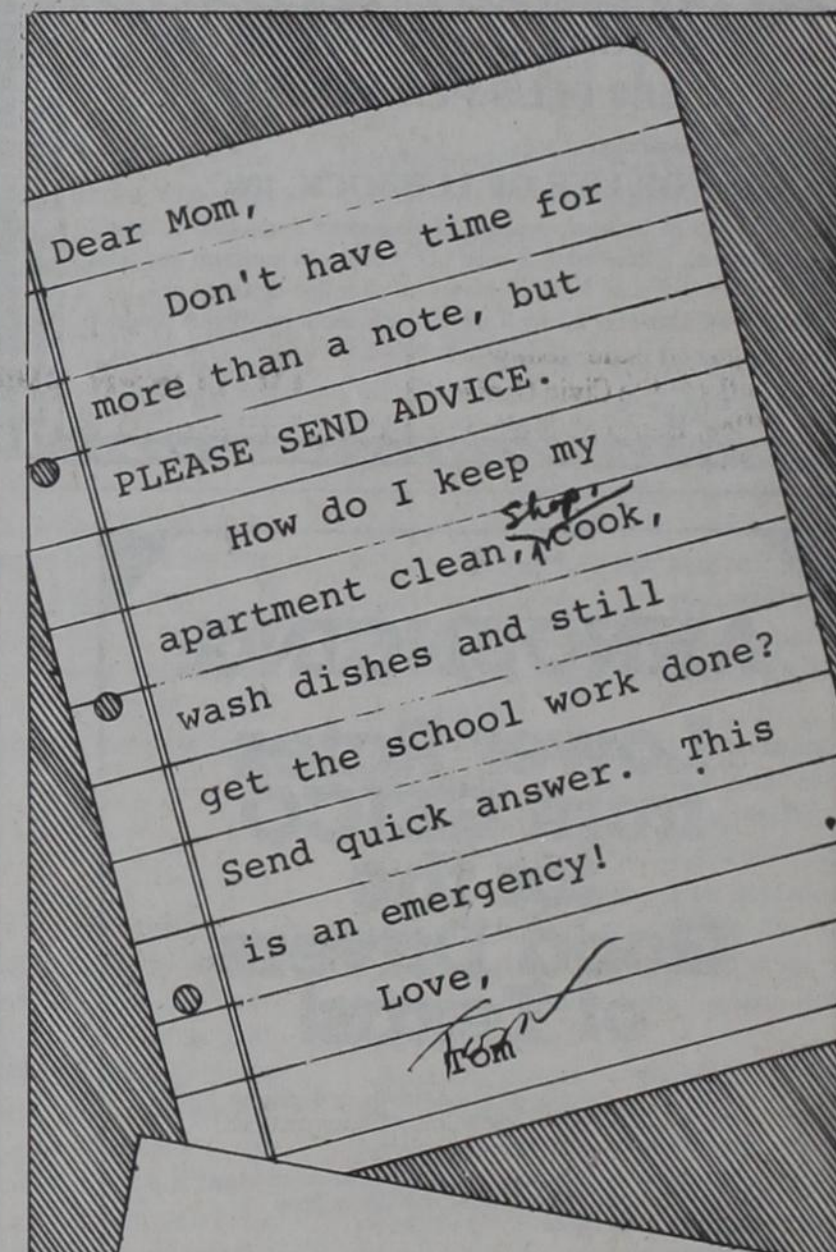 Dear Mom,
Don't have time for
more than a note, but
PLEASE SEND ADVICE.
How do I keep my
apartment clean, shop, cook,
wash dishes and still
get the school work done?
Send quick answer. This
is an emergency!
Love,
Tom
Tom